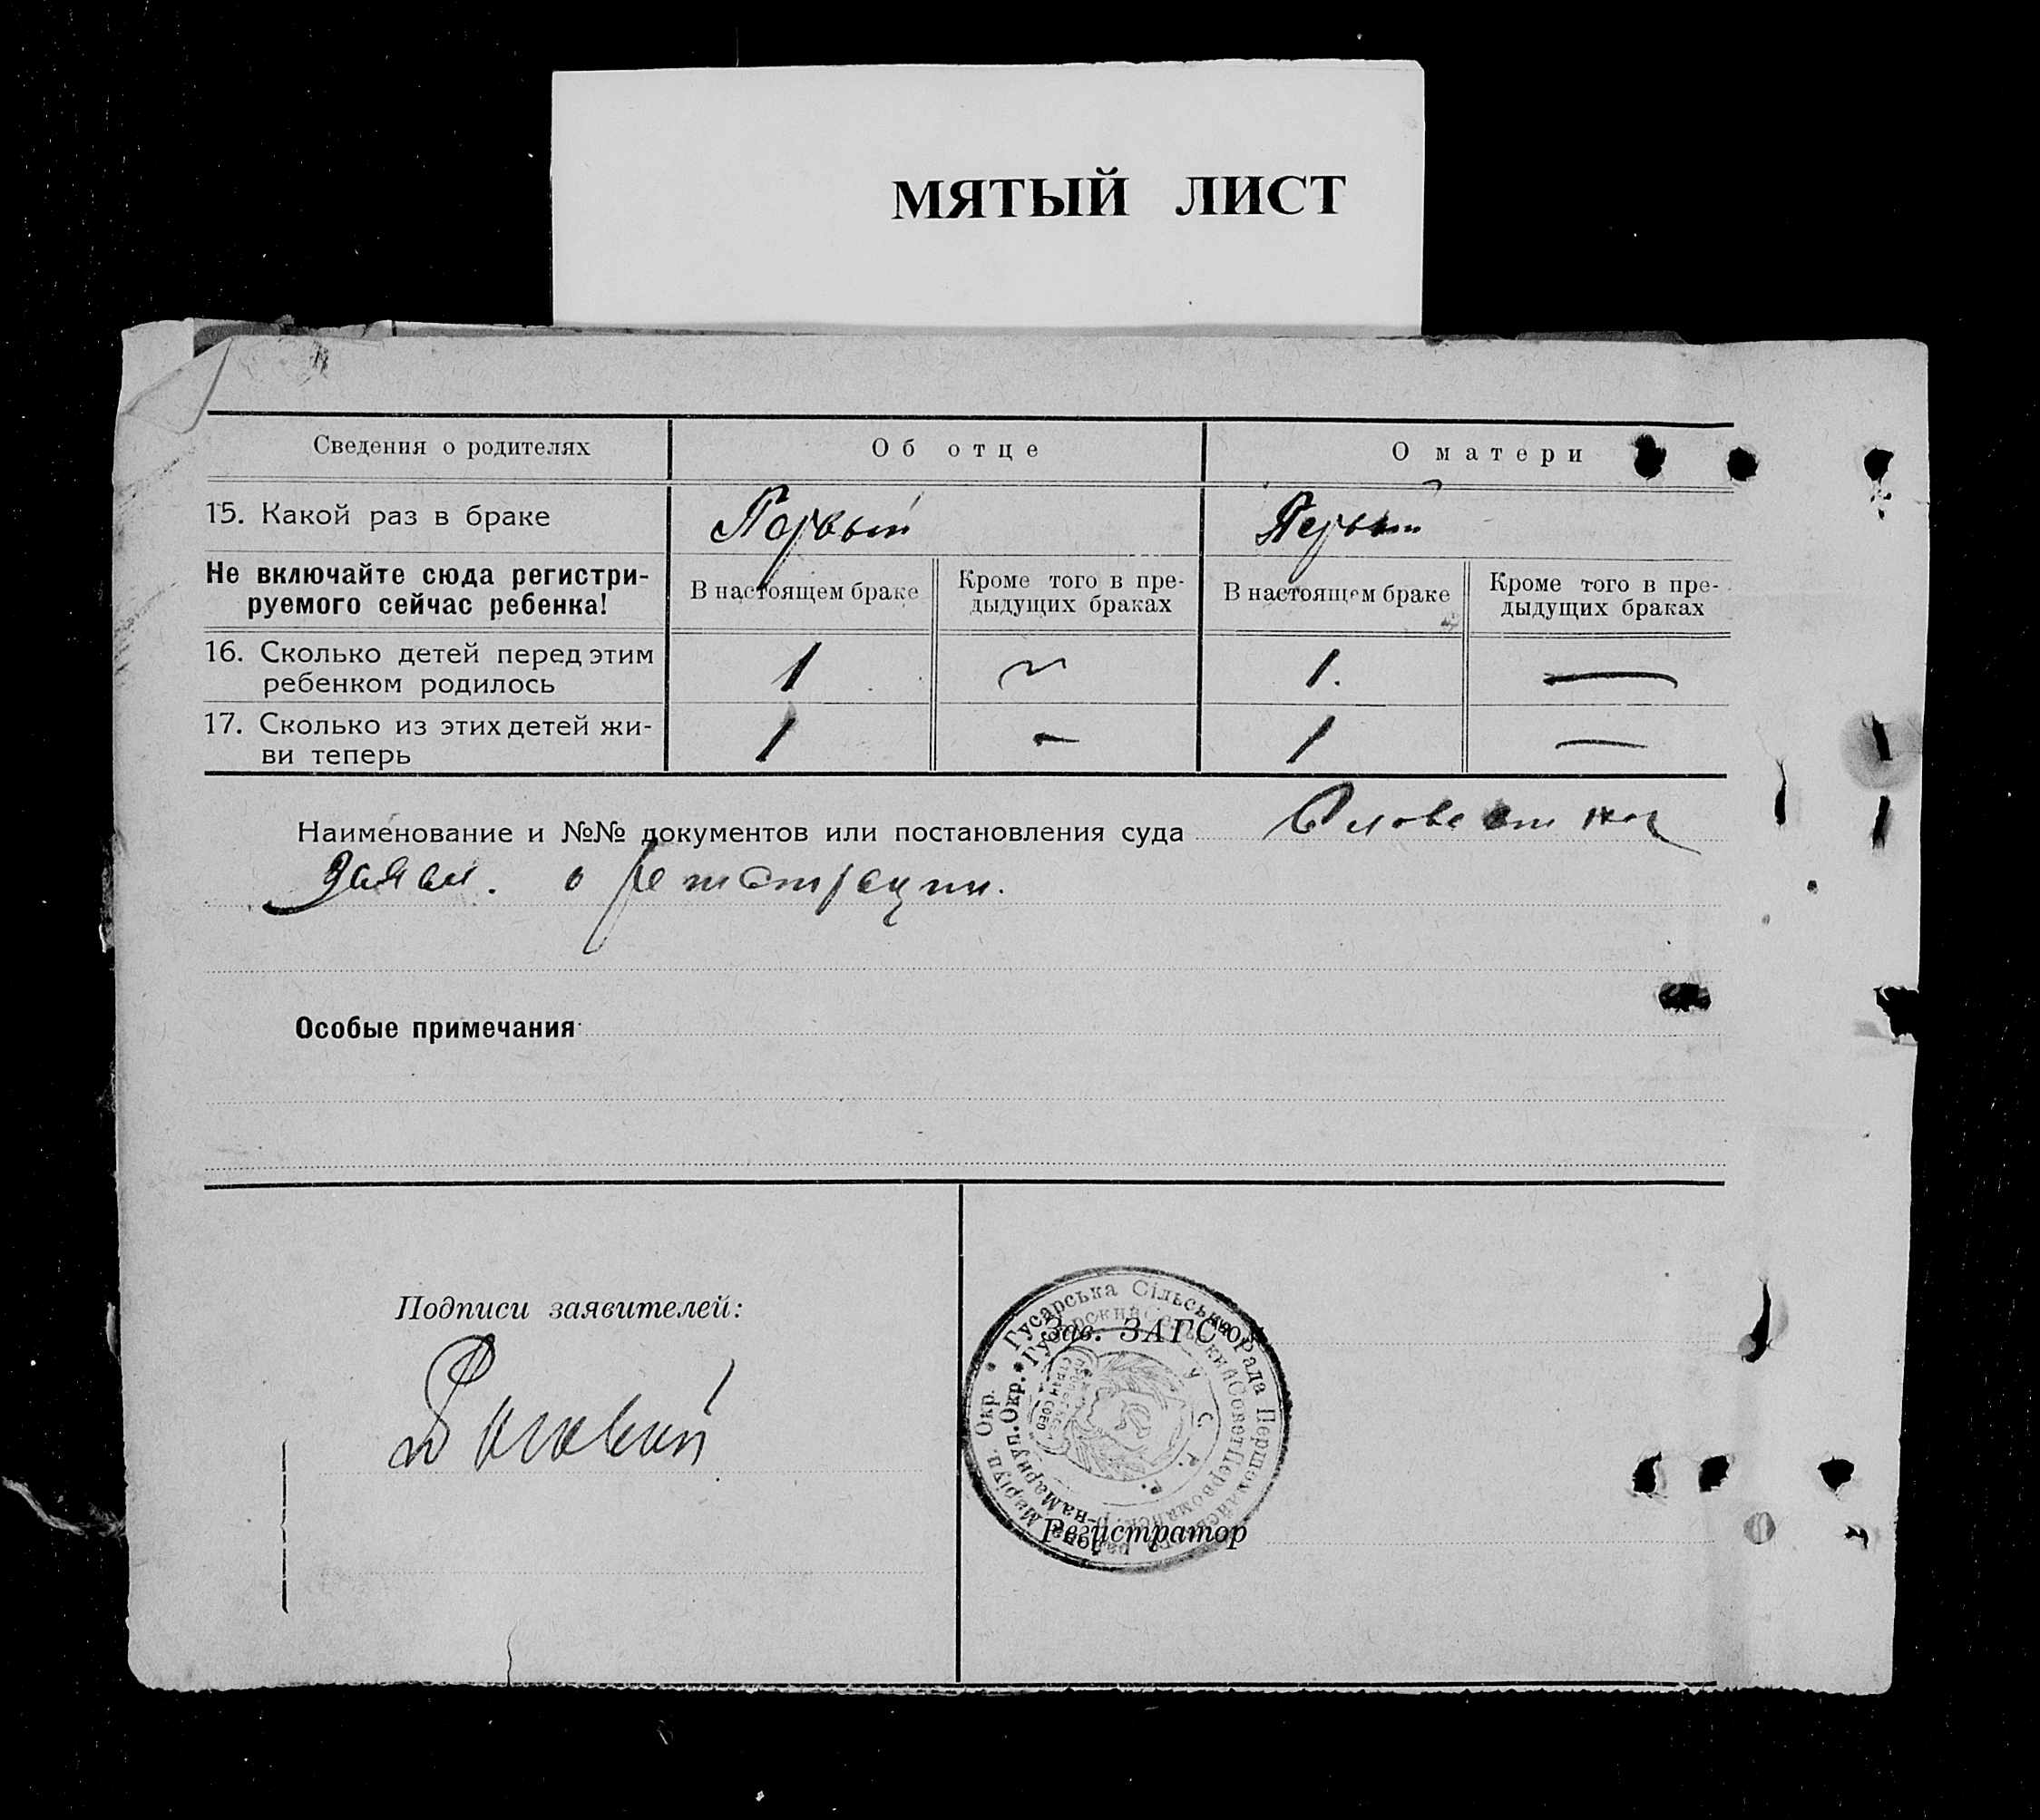 МЯТЫЙ ЛИСТ
Сведения о родителях
Об отце
О матери
15. Какой раз в браке
Первый
Первый
Не включайте сюда регистри-
руемого сейчас ребенка!
В настоящем браке
Кроме того в пре-
дыдущих браках
В настоящем браке
Кроме того в пре-
дыдущих браках
16. Сколько детей перед этим
ребенком родилось
1
1.
—
17. Сколько из этих детей жи-
ви теперь
1
-
1
—
Наименование и №№ документов или постановления суда Словестное
заявл. о регистрации.
Особые примечания
Подписи заявителей:
Зав. ЗАГС'ом
Регистратор
Гусарська Сільська Рада Першомайськ. Маріуп. Окр.
Гусарский Сельский Совет Первомайск. р-на Мариуп. Окр.
У. С. Р. Р.